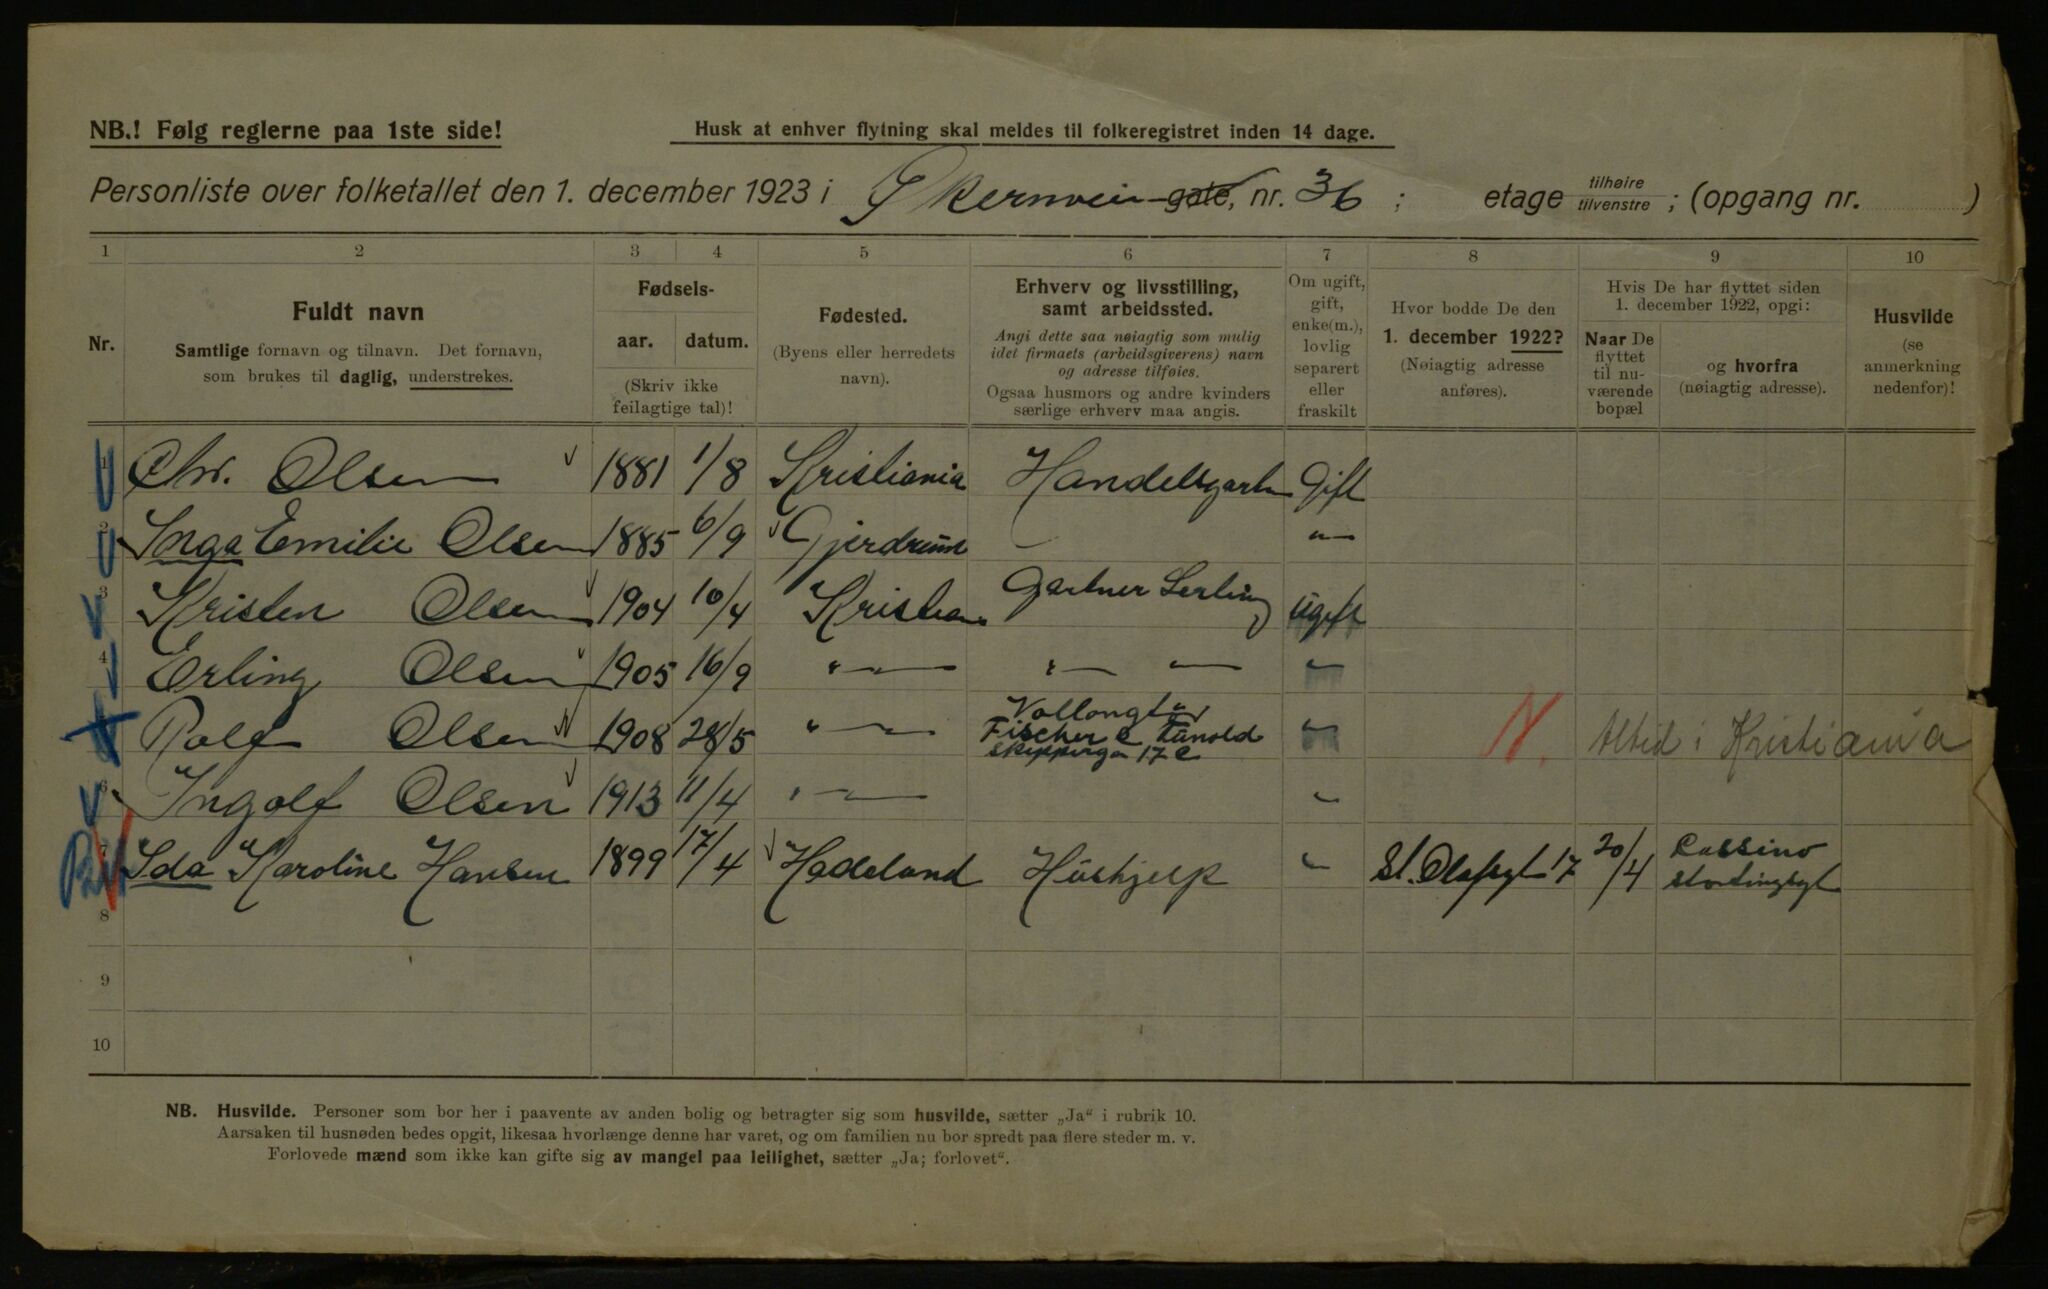 NB.! Følg reglerne paa 1ste side!
Husk at enhver flytning skal meldes til folkeregistret inden 14 dage.
Personliste over folketallet den 1. december 1923 i Økernvei gate, nr. 36 ; etage tilhøire tilvenstre ; (opgang nr. )
1 2 3 4 5 6 7 8 9 10
Nr.
Fuldt navn
Samtlige fornavn og tilnavn. Det fornavn,
som brukes til daglig, understrekes.
Fødsels-
aar. datum.
(Skriv ikke
feilagtige tal)!
Fødested.
(Byens eller herredets
navn).
Erhverv og livsstilling,
samt arbeidssted.
Angi dette saa nøiagtig som mulig
idet firmaets (arbeidsgiverens) navn
og adresse tilføies.
Ogsaa husmors og andre kvinders
særlige erhverv maa angis.
Om ugift,
gift,
enke(m.),
lovlig
separert
eller
fraskilt
Hvor bodde De den
1. december 1922?
(Nøiagtig adresse
anføres).
Hvis De har flyttet siden
1. december 1922, opgi:
Naar De
flyttet
til nu-
værende
bopæl
og hvorfra
(nøiagtig adresse).
Husvilde
(se
anmerkning
nedenfor)!
1 Chr. Olsen 1881 1/8 Kristiania Handelsgartn Gift
2 Inga Emilie Olsen 1885 6/9 Gjerdrum " 
3 Kristen Olsen 1904 10/4 Kristian Gartner Lerling ugift
4 Erling Olsen 1905 16/9 " " "
Rolf Olsen 1908 28/5 " Vollongtør " N. Altid i Kristiania
Fischer & Tunold
Skippergn 17 C
6 Ingolf Olsen 1913 11/4 " "
7 Ida Karoline Hansen 1899 17/4 Hadeland Hushjelp " St. Olafsgt 17 20/4 Cassino
Stortingsgt
8
9
10
NB. Husvilde. Personer som bor her i paavente av anden bolig og betragter sig som husvilde, sætter „Ja“ i rubrik 10.
Aarsaken til husnøden bedes opgit, likesaa hvorlænge denne har varet, og om familien nu bor spredt paa flere steder m. v.
Forlovede mænd som ikke kan gifte sig av mangel paa leilighet, sætter „Ja; forlovet“.